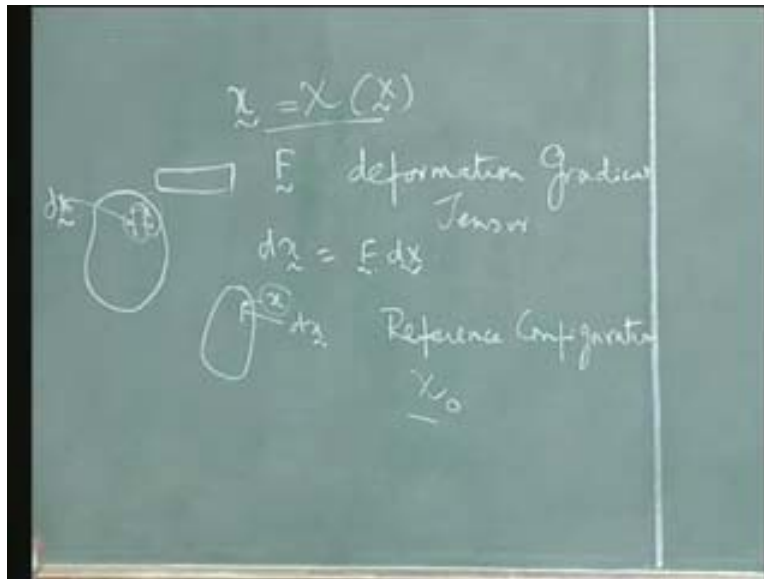 x = χ (X)
F deformation Gradient
Tensor
dX
dx = F dX
x
dx Reference Configuration
χ₀